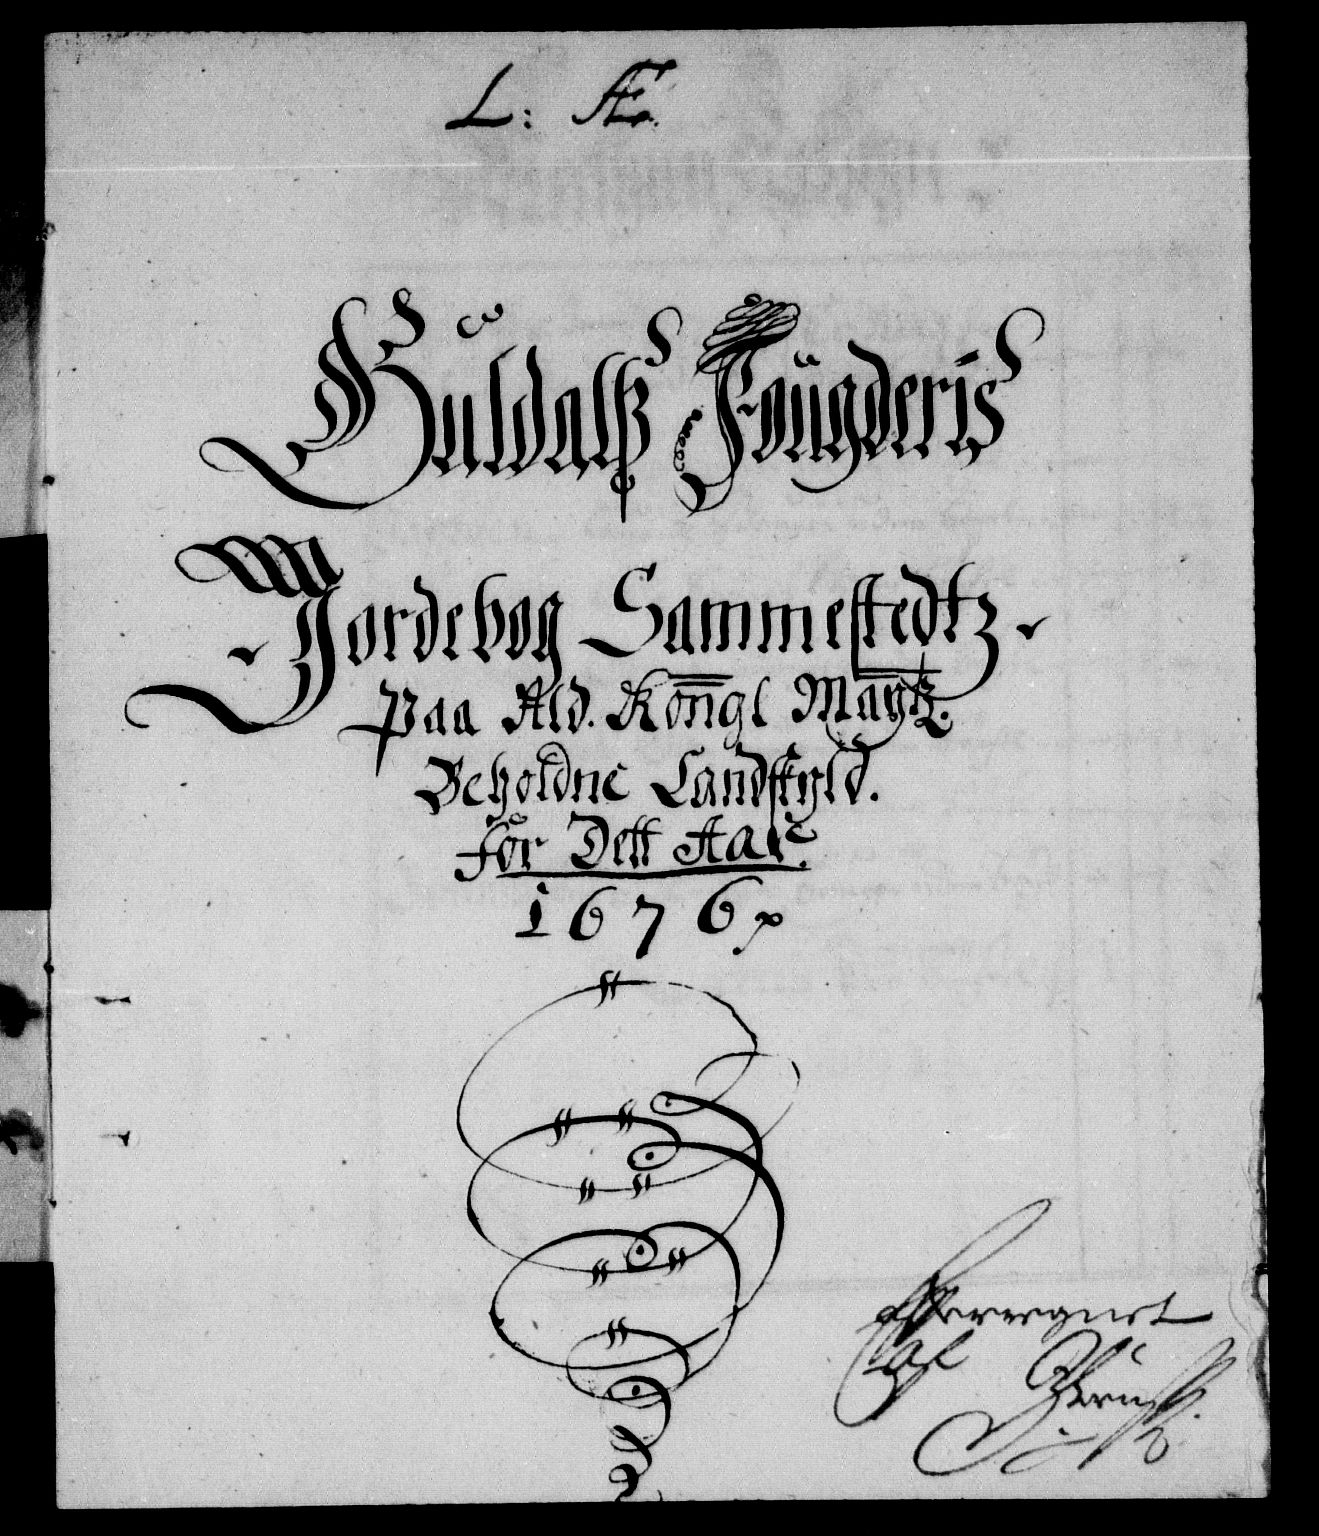 L: Æ.
Guldalß Fougderis
Jordebog Sammestedtz
Paa Ald. Kongl Maytz.
Beholdne Landskyld.
För Dett Aar.
1676
Efferregnet
af